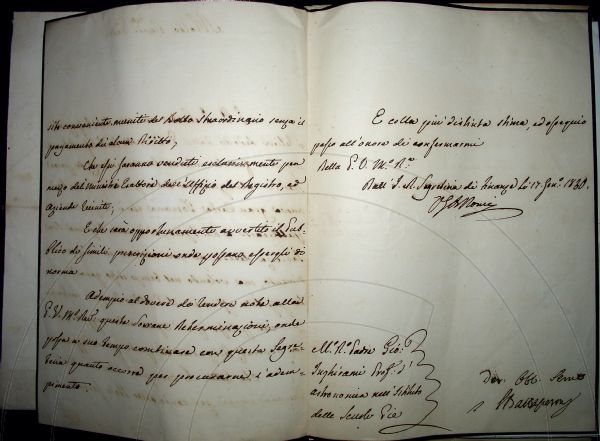 munite del Bollo Straordinario senza il
pagamento di alcun Diritto;
Che essi saranno vendute esclusivamente per
mezzo del Ministro Esattore dell'Uffizio del Registro, ed
Aziende Riunite;
E che sarà opportunamente avvertito il Pub-
blico di simili prescrizioni onde possano essergli di
norma.
Adempio al dovere di rendere note alla
P. V. M. Rev. queste Sovrane Determinazioni, onde
possa a suo tempo combinare con questa Segre-
teria quanto occorra per procurarne l'adem-
pimento.
E colla più distinta stima, ed ossequio
passo all'onore di confermarmi
Della P. V. M. R.
Dall' I. R. Segreteria di Finanze li 17 Gen.
M. R. Padre Gio:
Inghirami Prof. d'
astronomia nell'Istituto
delle Scuole Pie
Dev. Obb. Serv.